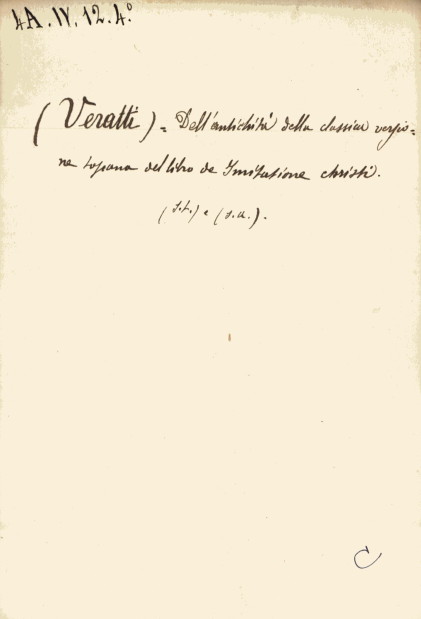 4A.IV.12.4º
(Veratti) = Dell'antichità della classica versio=
ne topana del libro de Imitatione christi.
(s.l.) e (s.a.).
C